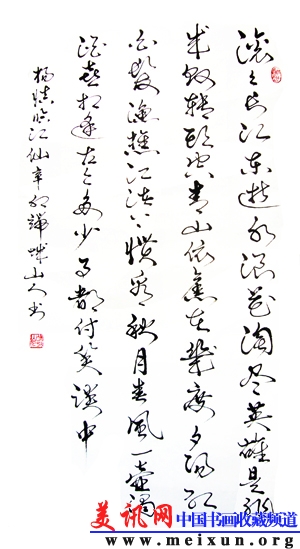 滚々长江东逝水浪花淘尽英雄是非
成败转头空青山依旧在几度夕阳红
白发渔樵江渚上惯看秋月春风一壶浊
酒喜相逢古今多少事都付笑谈中
杨慎临江仙辛卯山人书
美讯网 中国书画收藏频道
www.meixun.org